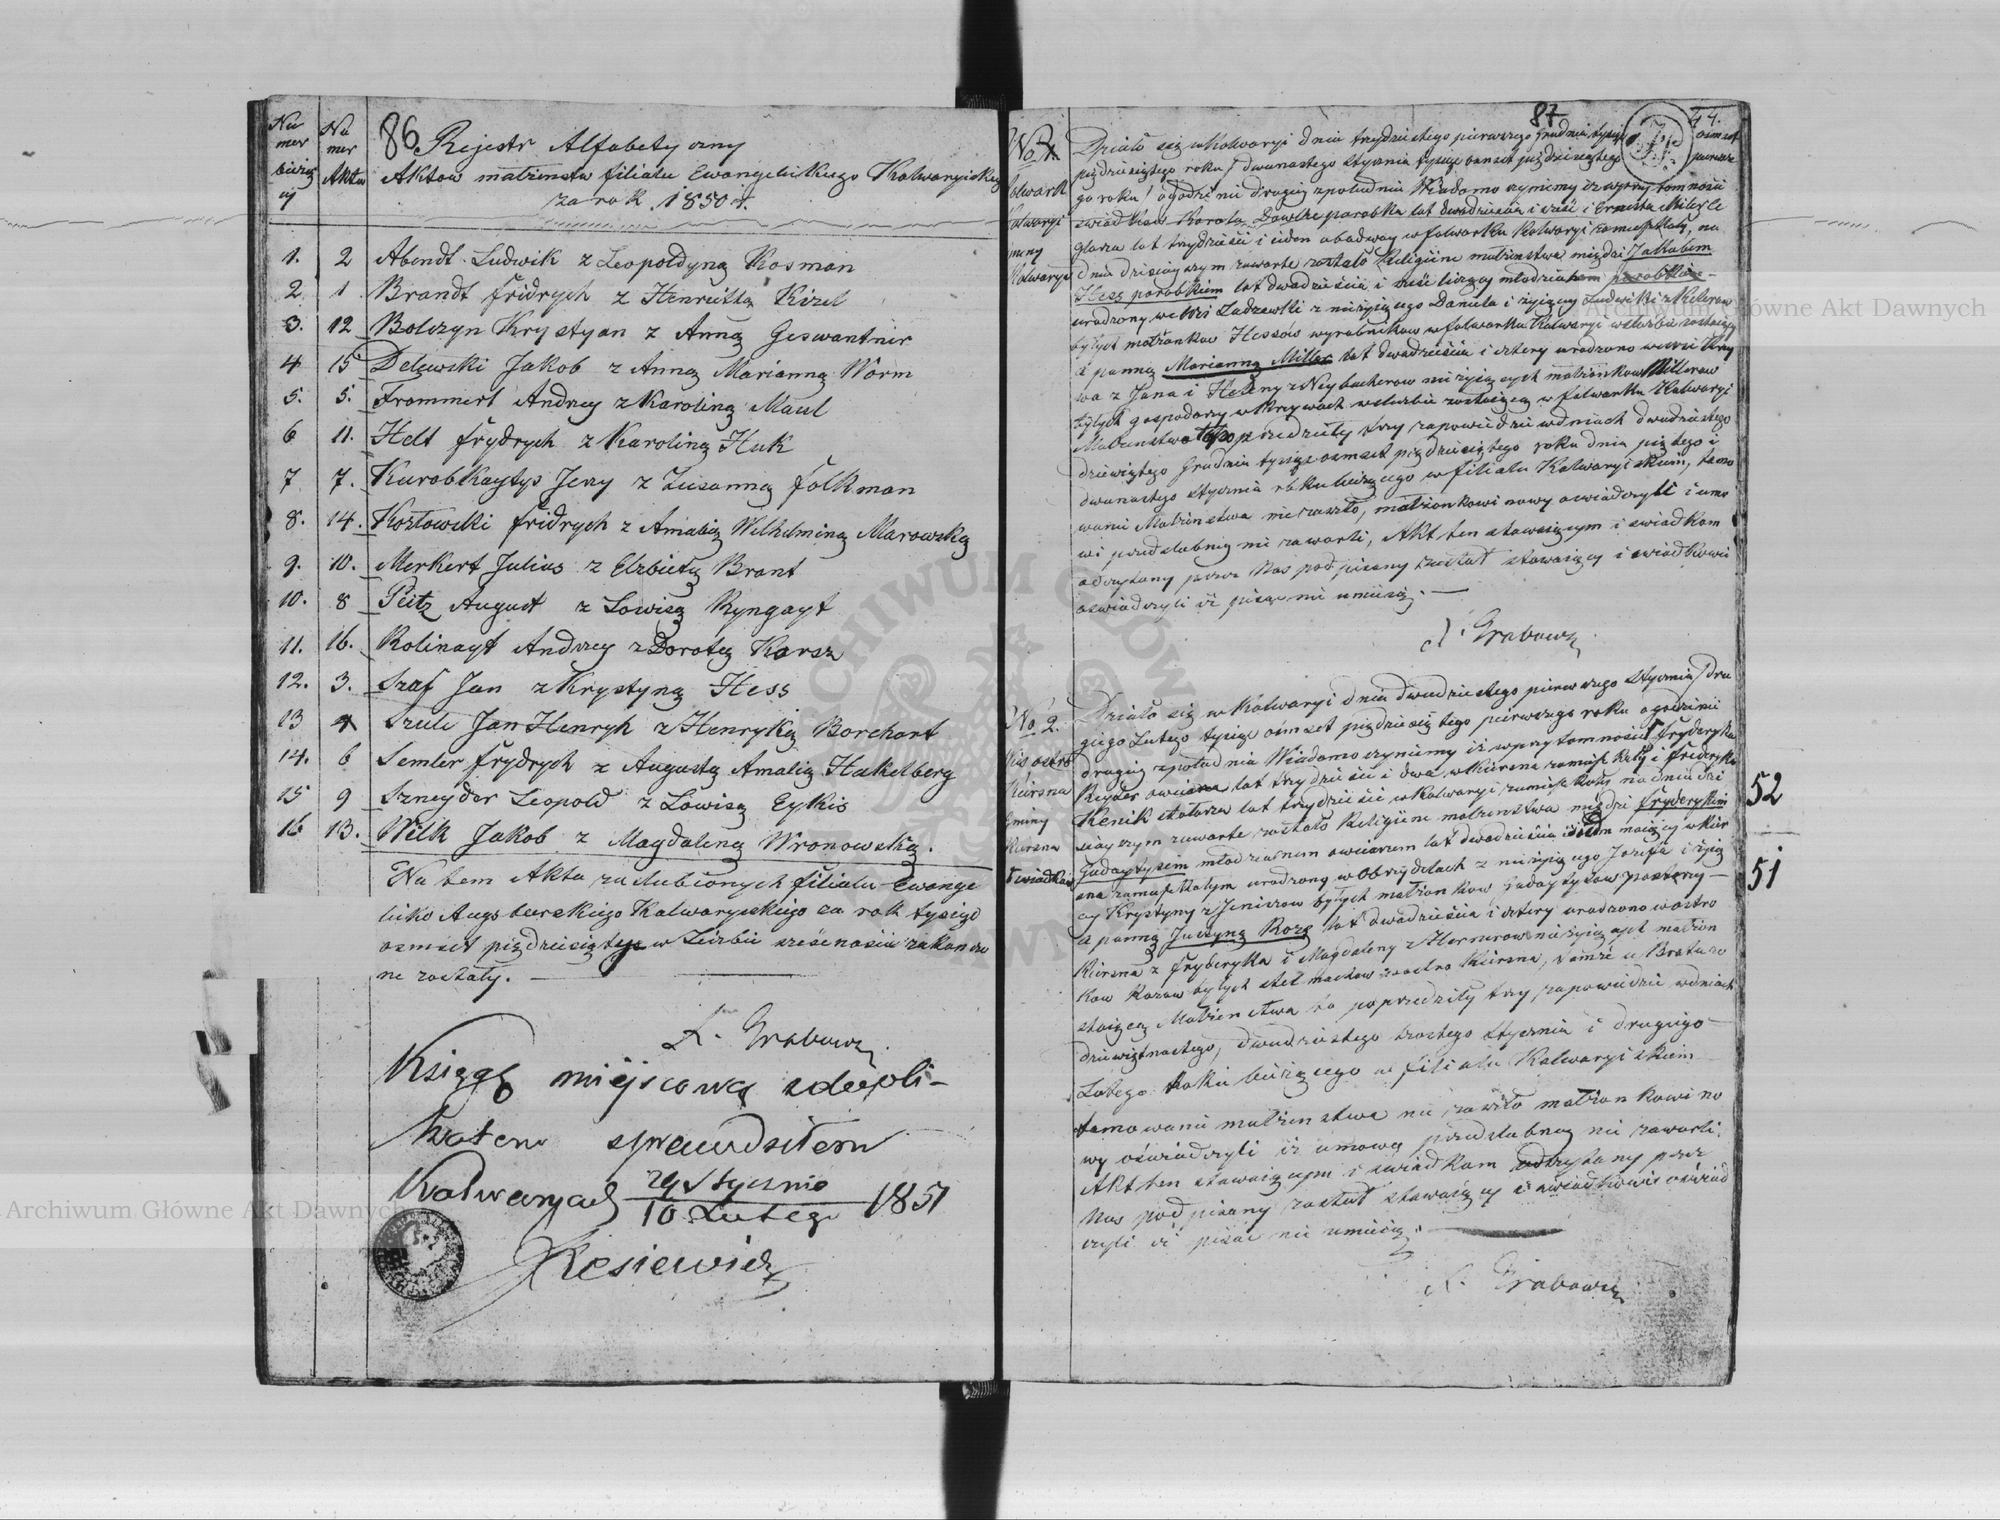 Nu
mer
bieżą
cy
Nu
mer
Aktu
86 Rejestr Alfabetyczny
Aktow małżenstw filialu Ewangelickiego Kalwaryiskiego
za rok 1850 r.
1. 2 Abendt Ludwik z Leopoldyną Kosman
2 1 Brandt fridrych z Henriettą Kizel
3. 12 Bolczyn Krystyan z Anną Geswantner
4 15 Delewski Jakob z Anną Marianną Worm
5. 5. Frommert Andrzey z Karoliną Maul
6 11. Helt frydrych z Karoliną Huk
7 7. Kurobkaytys Jerzy z Zuzanną folkman
8. 14. Kozłowski fridrych z Amalią Wilhelminą Marowską
9. 10. Merkert Julius z Elzbietą Brant
10. 8 Peitz August z Lowisą Ryngayt
11. 16. Rolinayt Andrzey z Dorotą Karsz
12. 3. Szaf Jan z Krystyną Hess
13 4 Szule Jan Henryk z Henryką Borchart
14. 6 Semler frydrych z Augustą Amalią Hakelberg
15 9 Szneyder Leopold z Lowisą Eykis
16 13. Wilk Jakob z Magdaleną Wronowską.
Na tem Akta zaslubionych filialu Ewange
licko Augsburskiego Kalwaryskiego za rok tysiąc
osmset pięcdziesiąty w Liczbie szesnascie zakonczo
ne zostały. —
A. Grabowski
Księgę miejscową z dupli-
katem sprawdziłem
Kalwarya d. 29 Stycznia
10 Lutego 1851
Kesiewicz
87
No 1.
folwark
Kalwaryi
gminy
Kalwarya
Działo się w Kalwaryi dnia trzydziestego pierwszego Grudnia tysiąc osmset
pięcdziesiątego roku / dwunastego stycznia tysiąc osmset pięcdziesiątego pierwsze
go roku / o godzinie drugiey z południa Wiadomo czynimy iż w przytomnosci
swiadkow Karola parobka lat dwadziescia i szesc i Ernesta
glarza lat trzydziesci i ieden obadway w folwarku Kalwaryi zamieszkałych, na
dniu dzisieyszym zawarte zostało Religiine małżenstwo między Jakubem
Hess parobkiem lat dwadziescia i szesc liczący młodzianem parobkiem
urodzony we Wsi z nieżyiącego Daniela i żyiącey Ludwiki z
byłych małżonkow Hessow wyrobnikow w folwarku Kalwaryi w służbie zostaiący
a panną Marianną Miller lat dwadziescia i cztery urodzoną we wsi Krzy
wa z Jana i Heleny z nieżyiących małżonkow Millerow
byłych gospodarzy w Krzywach w służbie zostaiącą w folwarku Kalwaryi
Małzenstwo to poprzedziły trzy zapowiedzi w dniach dwudziestego
dziewiątego Grudnia tysiąc osmset pięcdziesiątego roku dnia piątego i
dwunastego stycznia roku bieżącego w filialu Kalwaryiskim, tamo
wanie Małżenstwa nie zaszło, małżonkowie nowy oswiadczyli iż umo
wi przedslubney nie zawarli, Akt ten stawaiącym i swiadkom
odczytany przez Nas podpisany został stawaiący i swiadkowie
oswiadczyli iż pisać nie umieią. —
A. Grabowski
No 2.
Wieś ostro
Kirsna
Gminy
Kirsna
Działo się w Kalwaryi dnia dwudziestego pierwszego stycznia / dru
giego Lutego tysiąc osmset pięcdziesiątego pierwszego roku o godzinie
drugiey z południa Wiadomo czynimy iż w przytomnosci fryderyka
Reyder owczarza lat trzydziesci i dwa, w Kirsna zamieszkały i frederyka
Kenik stolarza lat trzydziesci w Kalwaryi zamieszkały na dniu dzi
sieyszym zawarte zostało Religiine małzenstwo między fryderykiem
Gudaytysem młodzianem owczarem lat dwadziescia i siedm maiący w Kir
sna zamieszkałym urodzony w Obrzydelach z nieżyiącego Jozefa i żyią
cey Krystyny z Jeniszow byłych małżonkow Gudaytysow
a panną Justyną Roze lat dwadziescia i cztery urodzoną w ostro
Kirsna z fryderyka i Magdaleny z nieżyiących małżon
kow Rozow byłych stelmachow w ostro Kirsna, tamże u Brata zo
staiącą Małżenstwo to poprzedziły trzy zapowiedzi w dniach
dziewiętnastego, dwudziestego szostego stycznia i drugiego
Lutego roku bieżącego w filialu Kalwaryiskiem
tamowanie małżenstwa nie zaszło małżonkowie no
wy oświadczyli iż umowę przedslubney nie zawarli.
Akt ten stawaiącym i swiadkom odczytany przez
Nas podpisany został stawaiący i swiadkowie oświad
czyli iż pisac nie umieią. —
A. Grabowski
52
51
Archiwum Główne Akt Dawnych
Archiwum Główne Akt Dawnych